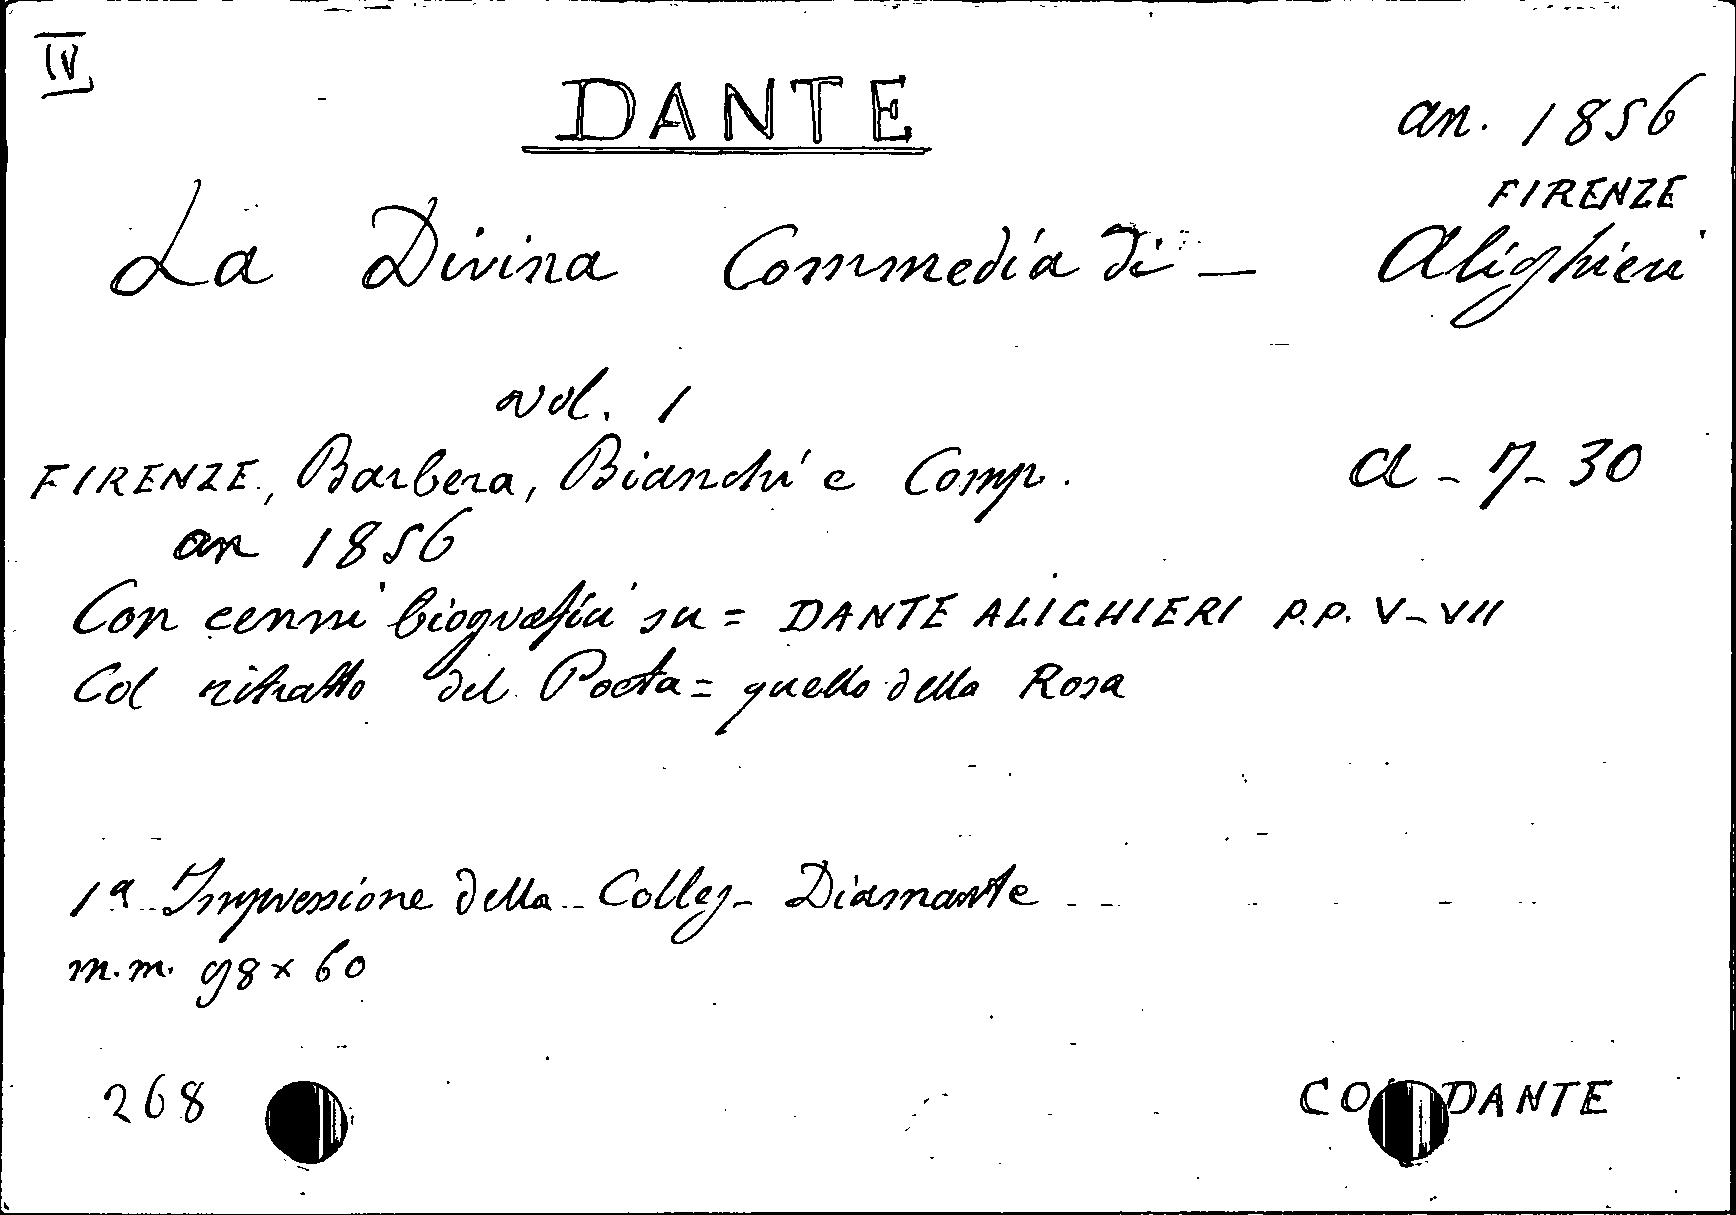 IV
DANTE
an. 1856
FIRENZE
La Divina Commedia di - Alighieri
vol. 1
FIRENZE, Barbera, Bianchi e Comp. a - 7 - 30
an 1856
Con cenni biografici su = DANTE ALIGHIERI P.P. V-VII
Col ritratto del Poeta = quello della Rosa
1ª Impressione della Collez- Diamante
m.m. 98 x 60
268
DANTE